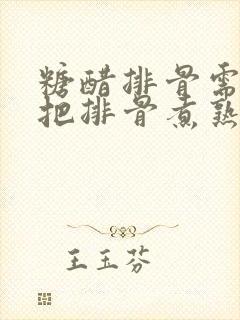 糖醋排骨需
把排骨煮熟
王玉芬